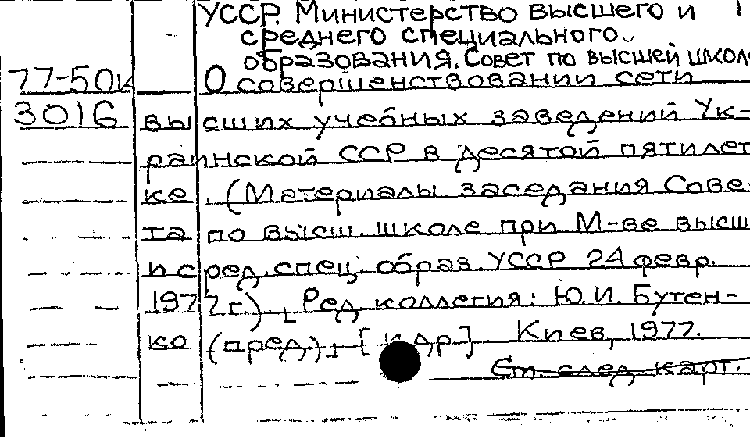 УССР. Министерство высшего и
среднего специального
образования. Совет по высшей школе
77-50к О совершенствовании сети
3016 высших учебных заведений Ук-
раинской ССР в десятой пятилет
ке. (Материалы заседания Сове
та по высш. школе при М-ве высш
и сред. спец. образ. УССР 24 февр.
1977 г.). Ред. коллегия: Ю.И. Бутен-
ко (пред.), [и др] Киев, 1977.
См. след. карт.